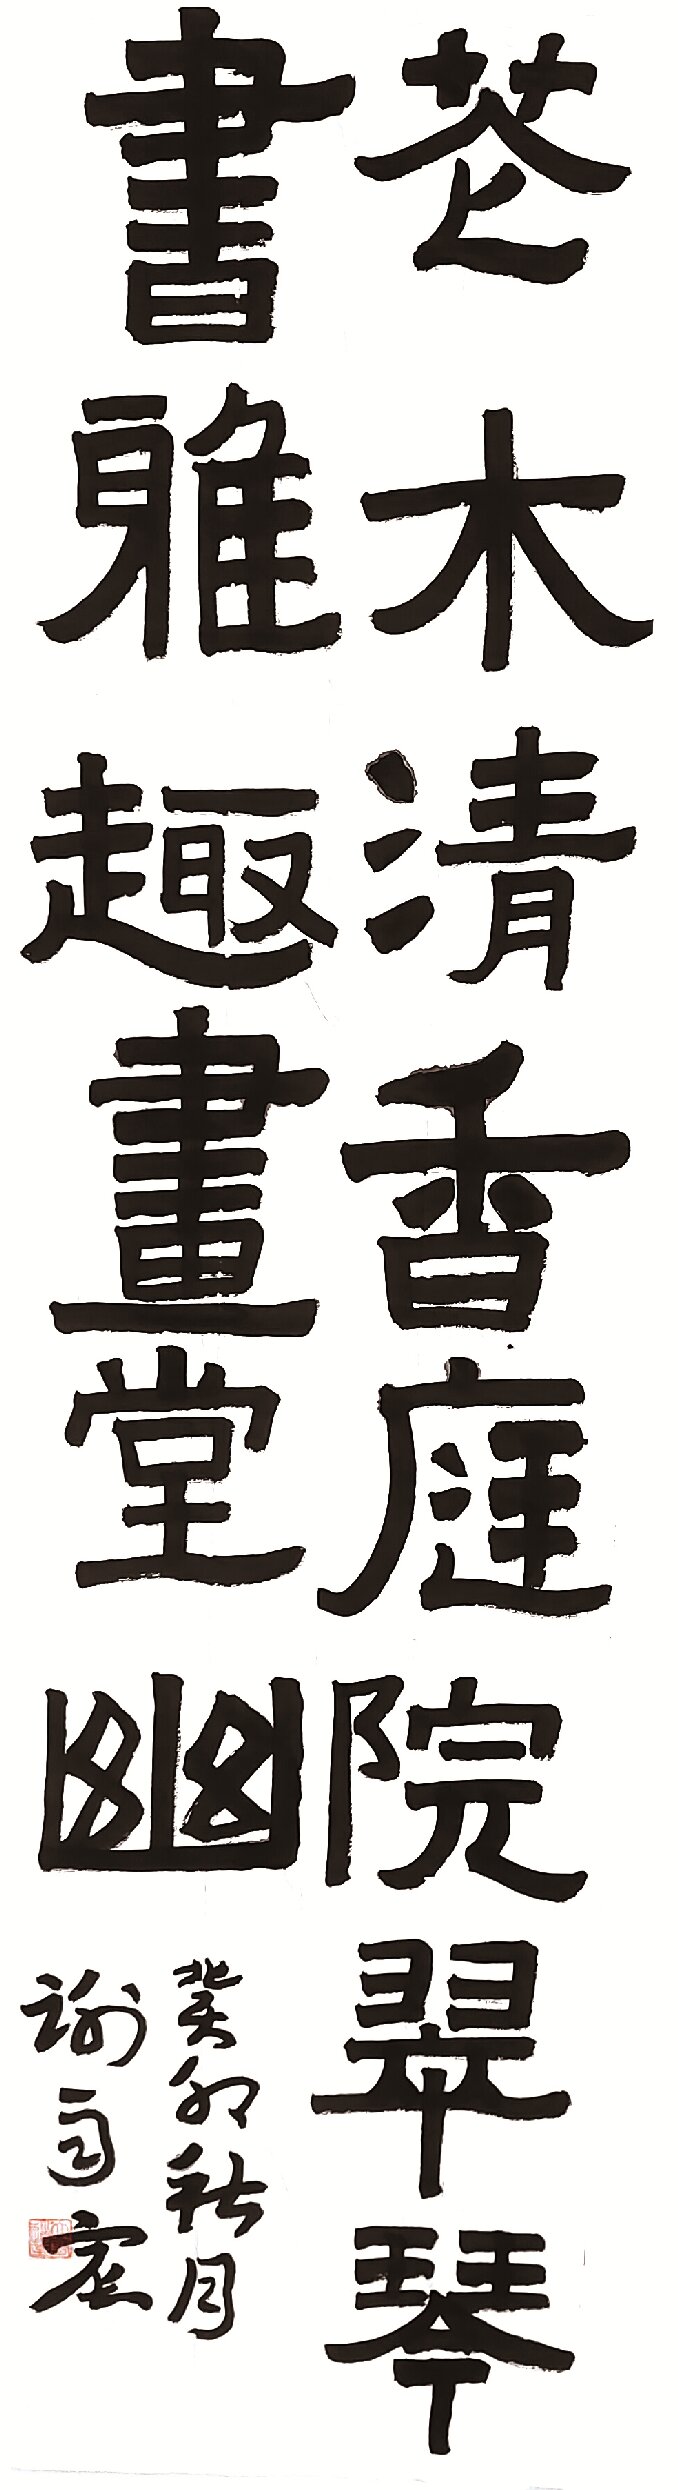 花木清香庭院翠琴
書雅趣畫堂幽
癸卯秋月
謝雨宏